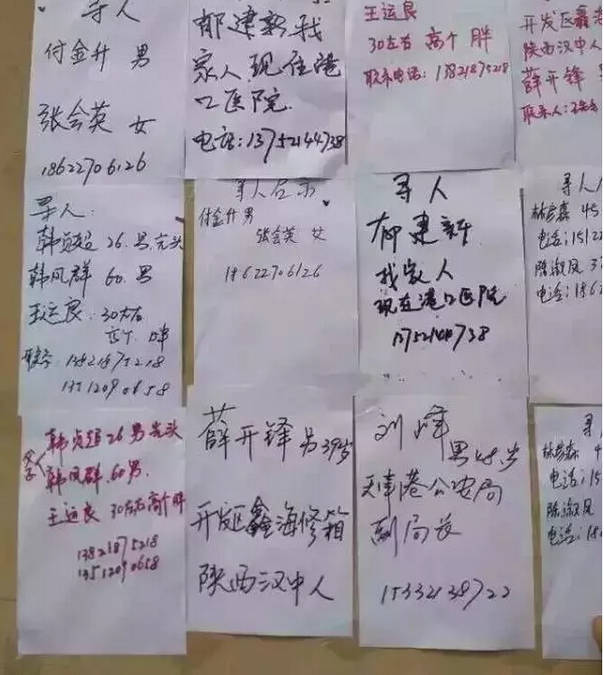 寻人
付金升 男
张会英 女
18622706126
郁建新 找
家人,现住港
口医院.
电话:13752144738
王运良
30左右 高个 胖
联系电话:13821875218
开发区鑫
陕西汉中人
薛开锋
联系人:
寻人:
韩贞超 26.男.光头
韩风群 60.男
王运良:30左右
高个 胖
联系:13821875218
13512090658
寻人启示
付金升 男
张会英 女
18622706126
寻人
郁建新
找家人
现在港口医院
13752144738
寻人
45
电话:15122
陈淑凤 3
电话:186
寻
韩贞超 26男 光头
韩风群.60男.
王运良 30左右高个胖
13821875218
13512090658
薛开锋 男39岁
开发区鑫海修箱
陕西汉中人
刘峰
男48岁
天津港公安局
副局长
15332138722
寻人
4
电话:15
陈淑凤
电话:18